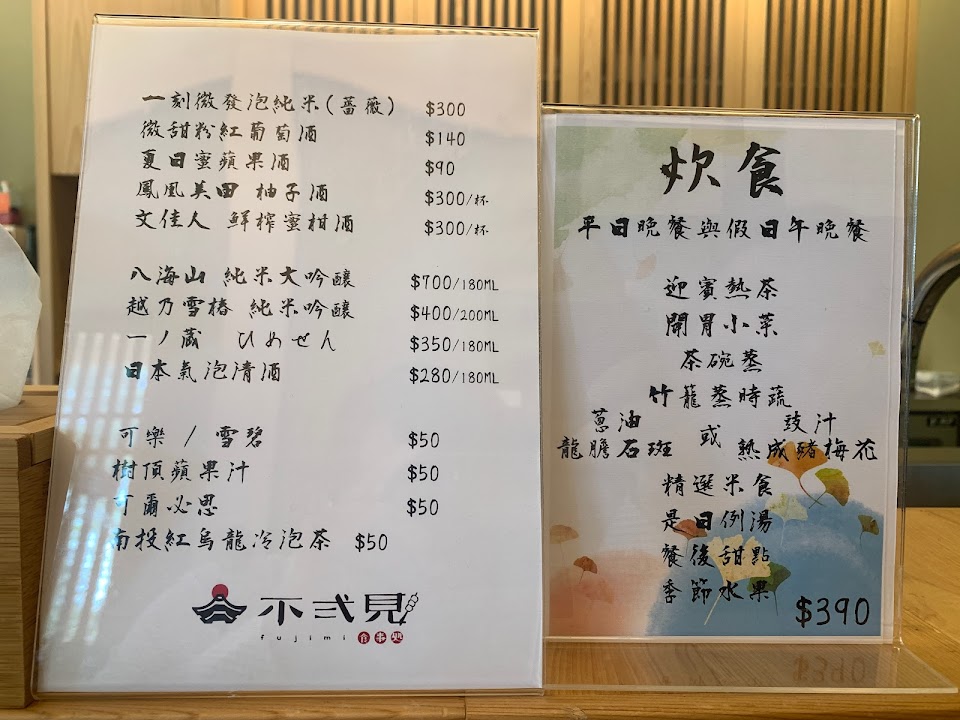 一刻微發泡純米(薔薇) $300
微甜粉紅葡萄酒 $140
夏日蜜蘋果酒 $90
鳳凰美田 柚子酒 $300/杯
文佳人 鮮榨蜜柑酒 $300/杯
八海山 純米大吟釀 $700/180ML
越乃雪椿 純米吟釀 $400/200ML
一ノ蔵 ひめぜん $350/180ML
日本氣泡清酒 $280/180ML
可樂 / 雪碧 $50
樹頂蘋果汁 $50
可爾必思 $50
南投紅烏龍冷泡茶 $50
不弍見
fujimi
炊食
平日晚餐與假日午晚餐
迎賓熱茶
開胃小菜
茶碗蒸
竹籠蒸時蔬
蔥油 或 豉汁
龍膽石斑 熟成豬梅花
精選米食
是日例湯
餐後甜點
季節水果
$390